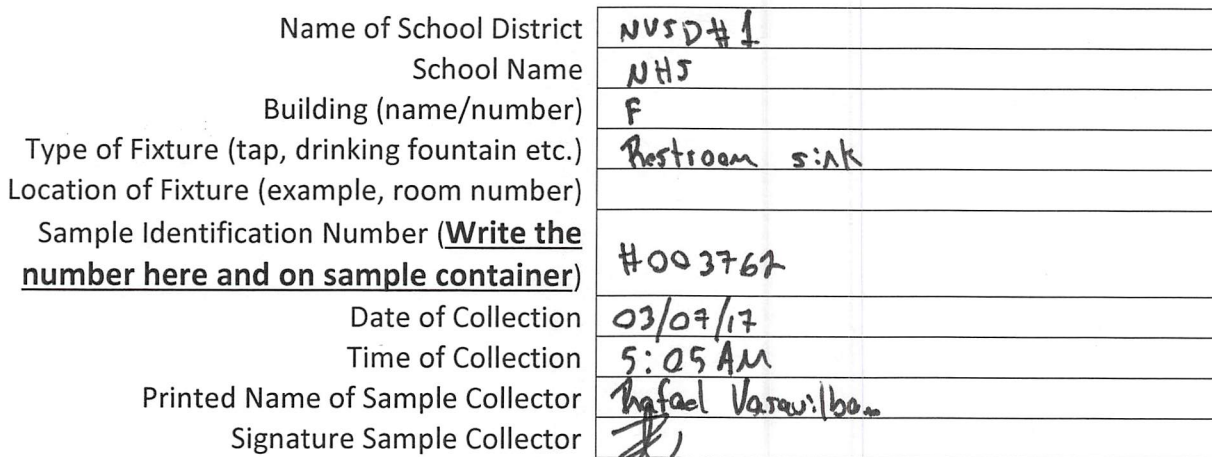 Name of School District NVSD#1
School Name NHS
Building (name/number) F
Type of Fixture (tap, drinking fountain etc.) Restroom sink
Location of Fixture (example, room number)
Sample Identification Number (Write the
number here and on sample container) #003762
Date of Collection 03/07/17
Time of Collection 5:05 AM
Printed Name of Sample Collector Rafael
Signature Sample Collector